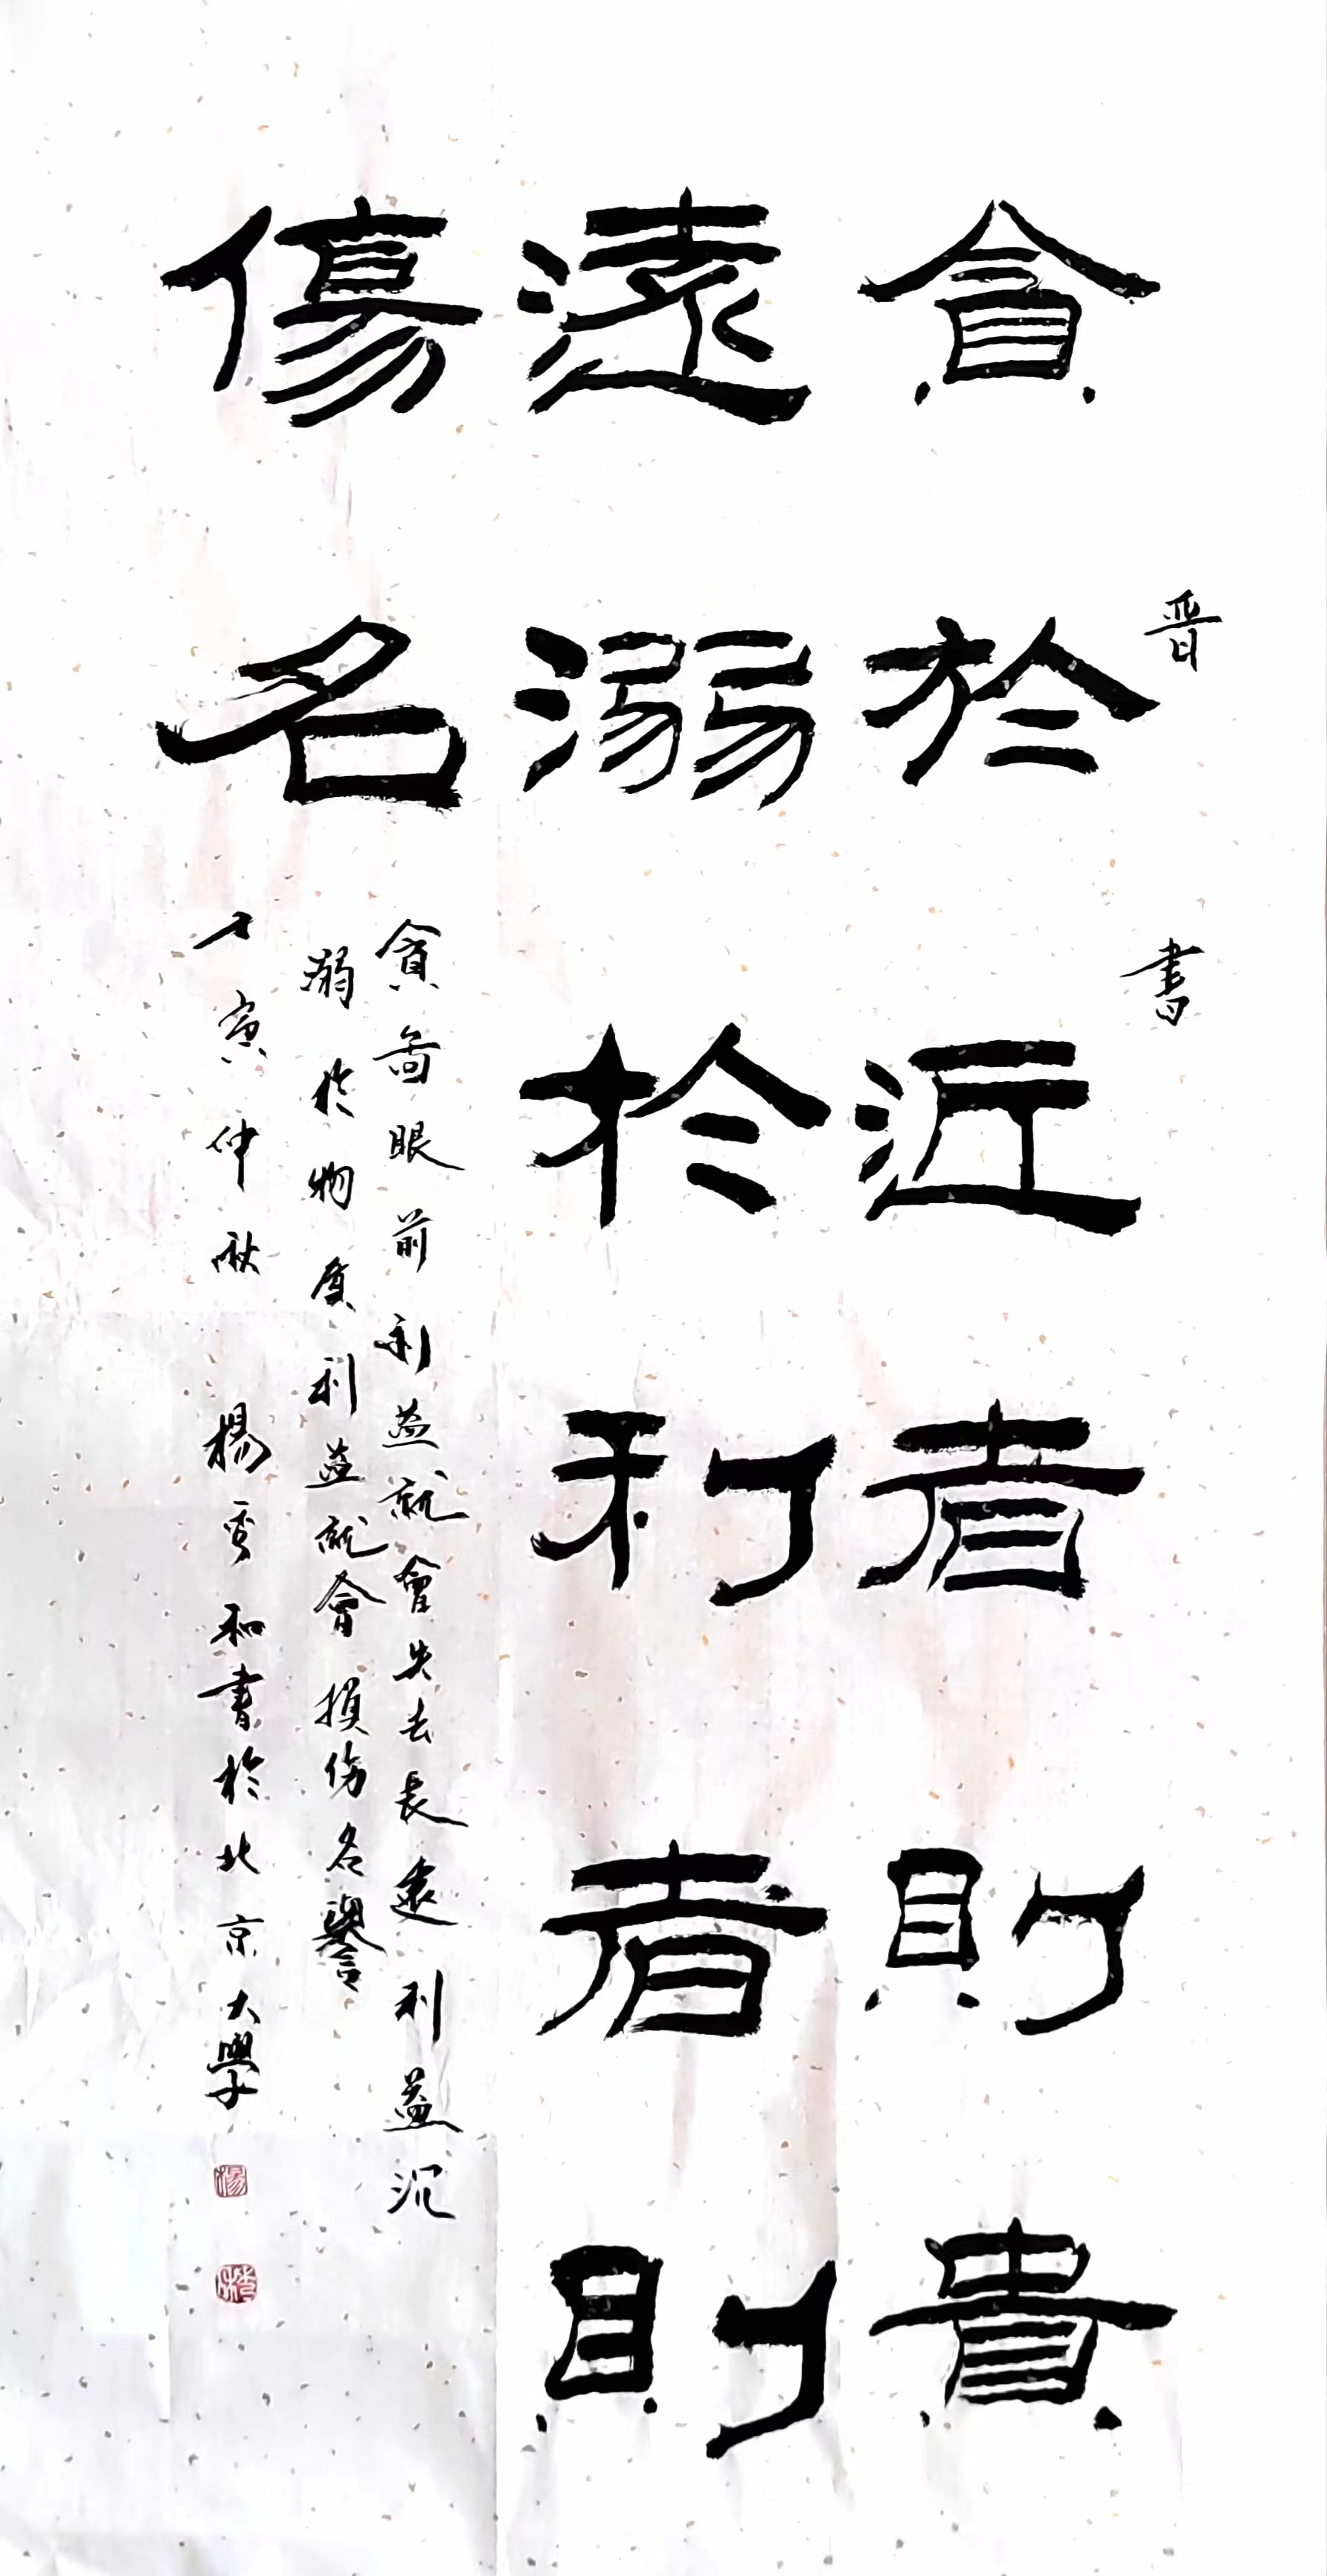 晋書
貪於近者則貴
遠溺於利者則
傷名
貪啚眼前利益就會失去長遠利益沉
溺於物质利益就會損伤名譽
壬寅仲秋 楊秀和書於北京大學
楊